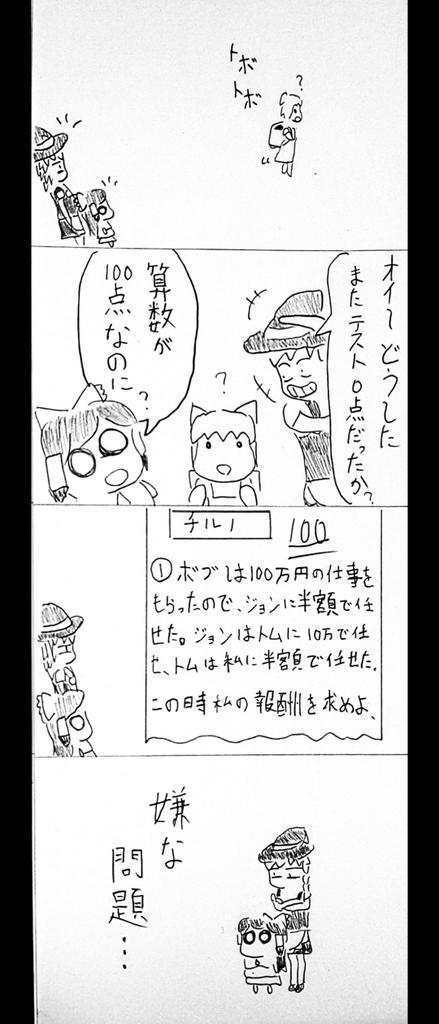 トボ
トボ
?
オイ〜どうした
またテスト0点だったか?
算数が
100
点なのに
?
?
チルノ
100
①ボブは100万円の仕事を
もらったので、ジョンに半額で任
せた。ジョンはトムに10万で任
せ、トムは私に半額で任せた.
この時私の報酬を求めよ、
嫌な
問題…